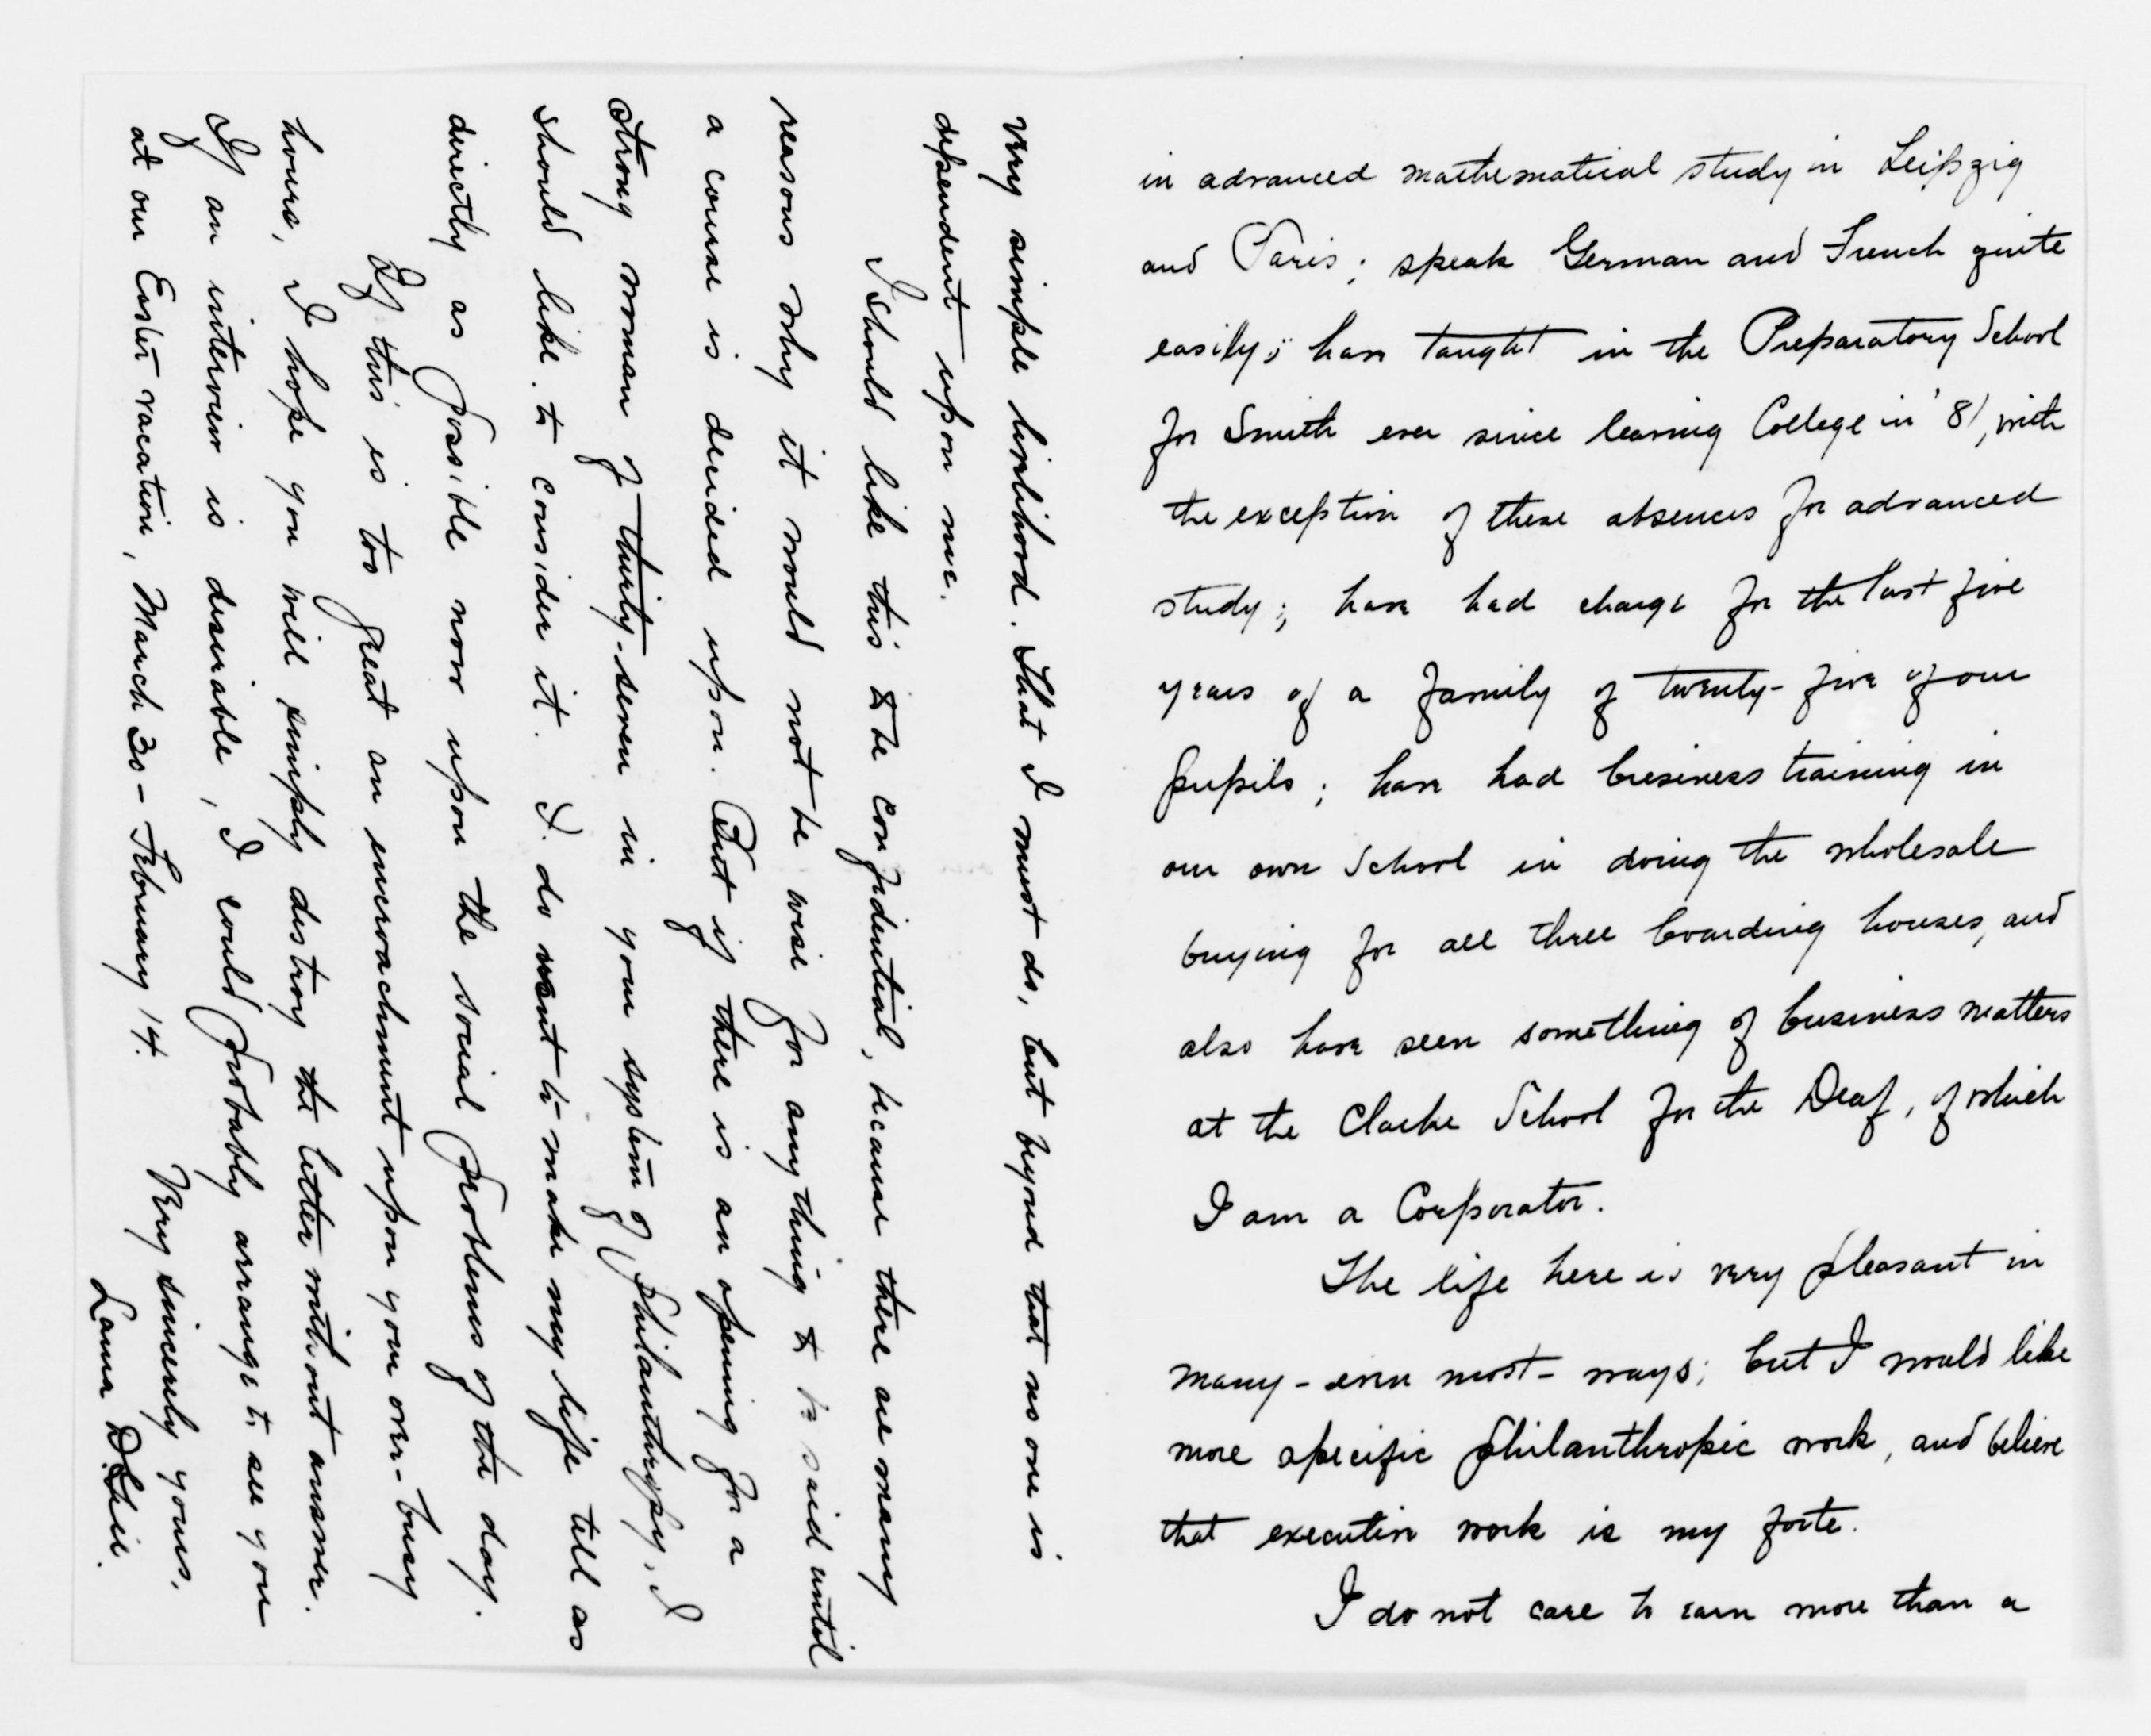 in advanced mathematical study in Leipzig
and Paris; speak German and French quite
easily; have taught in the Preparatory School
for Smith ever since leaving College in '81, with
the exception of these absences for advanced
study; have had charge for the last five
years of a family of twenty-five of our
pupils; have had business training in
our own School in doing the wholesale
buying for all three boarding houses, and
also have seen something of business matters
at the Clarke School for the Deaf, of which
I am a Corporator.
The life here is very pleasant in
many - even most - ways; but I would like
more specific philanthropic work, and believe
that executive work is my forte.
I do not care to earn more than a
very simple livelihood. That I must do, but beyond that no one is
dependent upon me.
I should like this to be confidential, because there are many
reasons why it would not be wise for anything to be said until
a course is decided upon. But if there is an opening for a
strong woman of thirty-seven in your system of philanthropy, I
should like to consider it. I do want to make my life tell as
directly as possible now upon the social problems of the day.
If this is too great an encroachment upon your over-busy
hours, I hope you will simply destroy the letter without answer.
If an interview is desirable, I could probably arrange to see you
at our Easter vacation, March 30 - February 14.
Very sincerely yours,
Laura D.